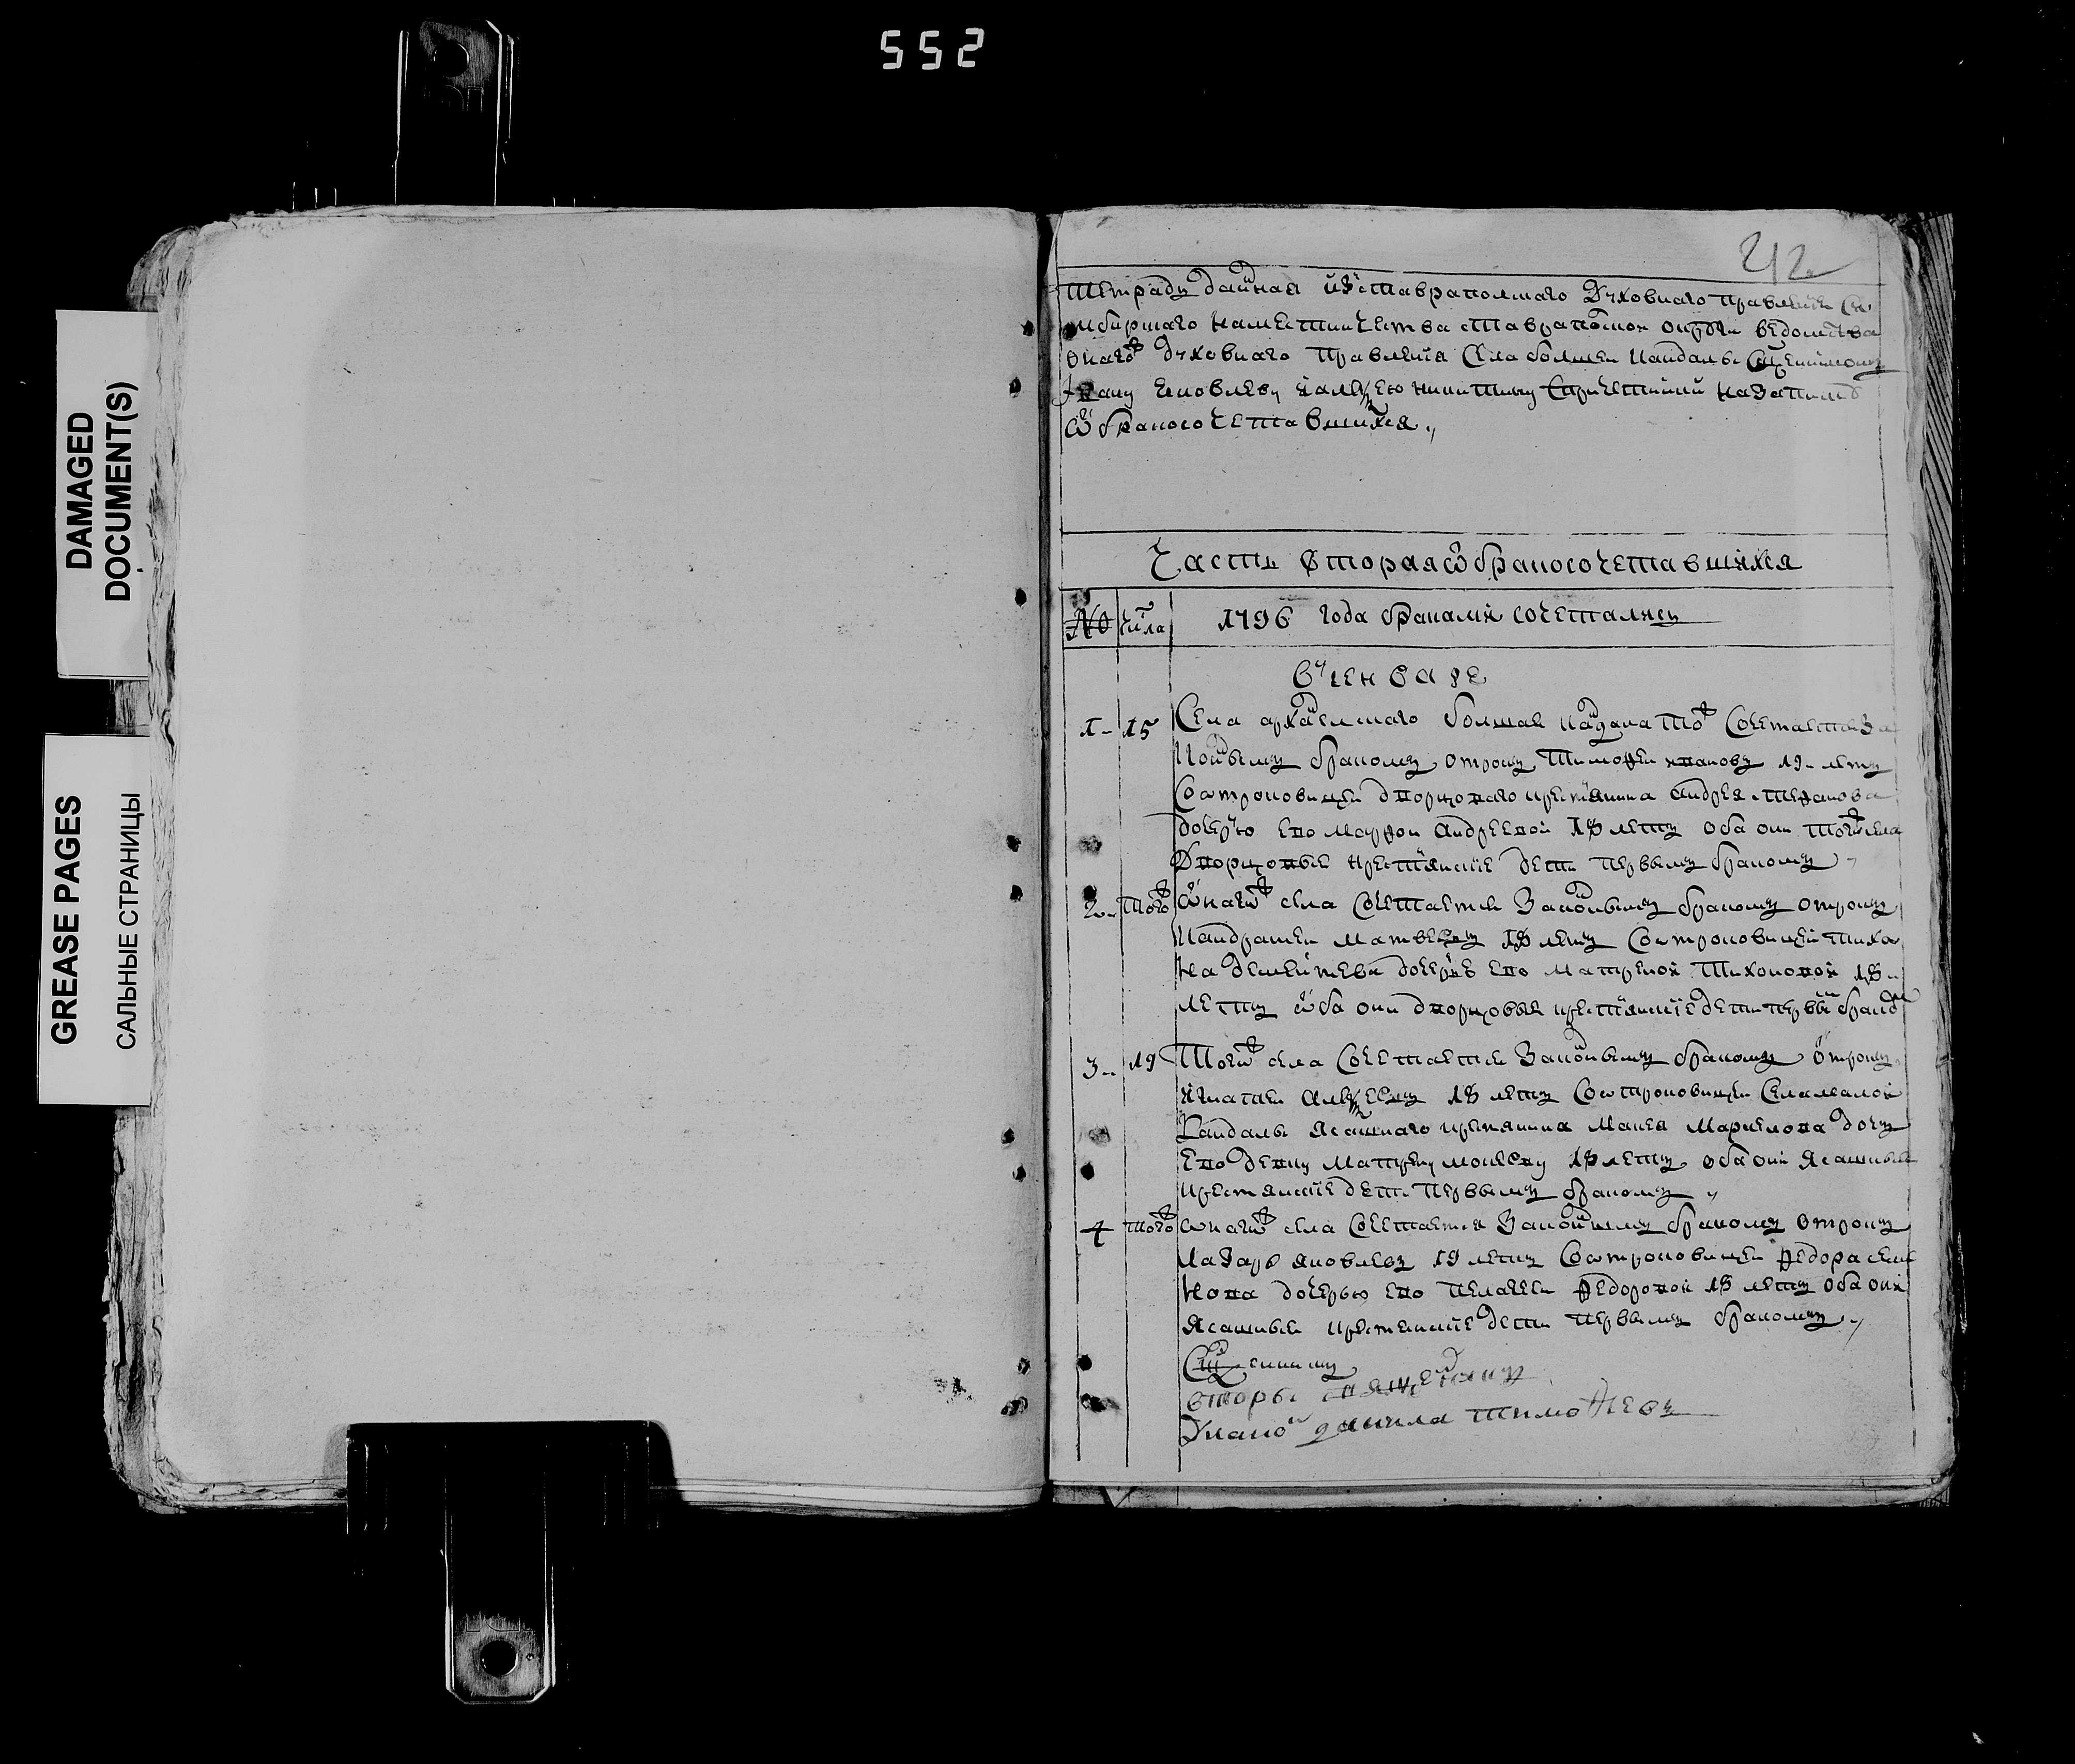 552
DAMAGED
DOCUMENT(S)
GREASE PAGES
САЛЬНЫЕ СТРАНИЦЫ
212
Тетрадь данная изставрапольскаго Духовнаго правления Си
мбирскаго наместничества ставрапольской округи ведомства
онагож духовнаго правления села большей кандалы священнику
Ивану Яковлеву Алексею Никитину спричетники на записку
ѡ бракосочетавшихся
Часть вторая ѡ бракосочетавшихся
№ числа 1796 года браками сочетались
въ енваре
1 - 15 Села архангельскаго большая кандала тож Сочетаетца за
коннымъ бракомъ отрокъ Тимофей Иванов 19 летъ
Соотроковицей дворцоваго крестянина андрея степанова
дочерю ево марфой андреевой 18 летъ оба они тогож села
Дворцовые крестянские дети первымъ бракомъ
2 - тогож ѡнагож села сочетается законнымъ бракомъ отрокъ
Кандратей Матвеевъ 18 летъ Соотроковицей тихо
на дементева дочерью ево матреной Тихоновой 18
летъ ѡба они дворцовыя крестянские дети первым браком
3 - 19 Тогож села Сочетается законнымъ бракомъ отрокъ
игнатей алексеевъ 18 летъ Соотроковицей села малой
Кандалы ясашнаго крестянина Макея Маркелова дочь
ево девку Матрену 18 летъ оба они ясашные
крестянские дети первымъ бракомъ
4 тогож ѡнагож села Сочетается законнымъ бракомъ отрокъ
Лазарь яковлевъ 19 летъ Соотроковицей федора семе
нова дочерью ево пелагеей федоровой 18 летъ оба они
ясашные крестянские дети первымъ бракомъ
Священникъ
вторы
данила тимофеевъ